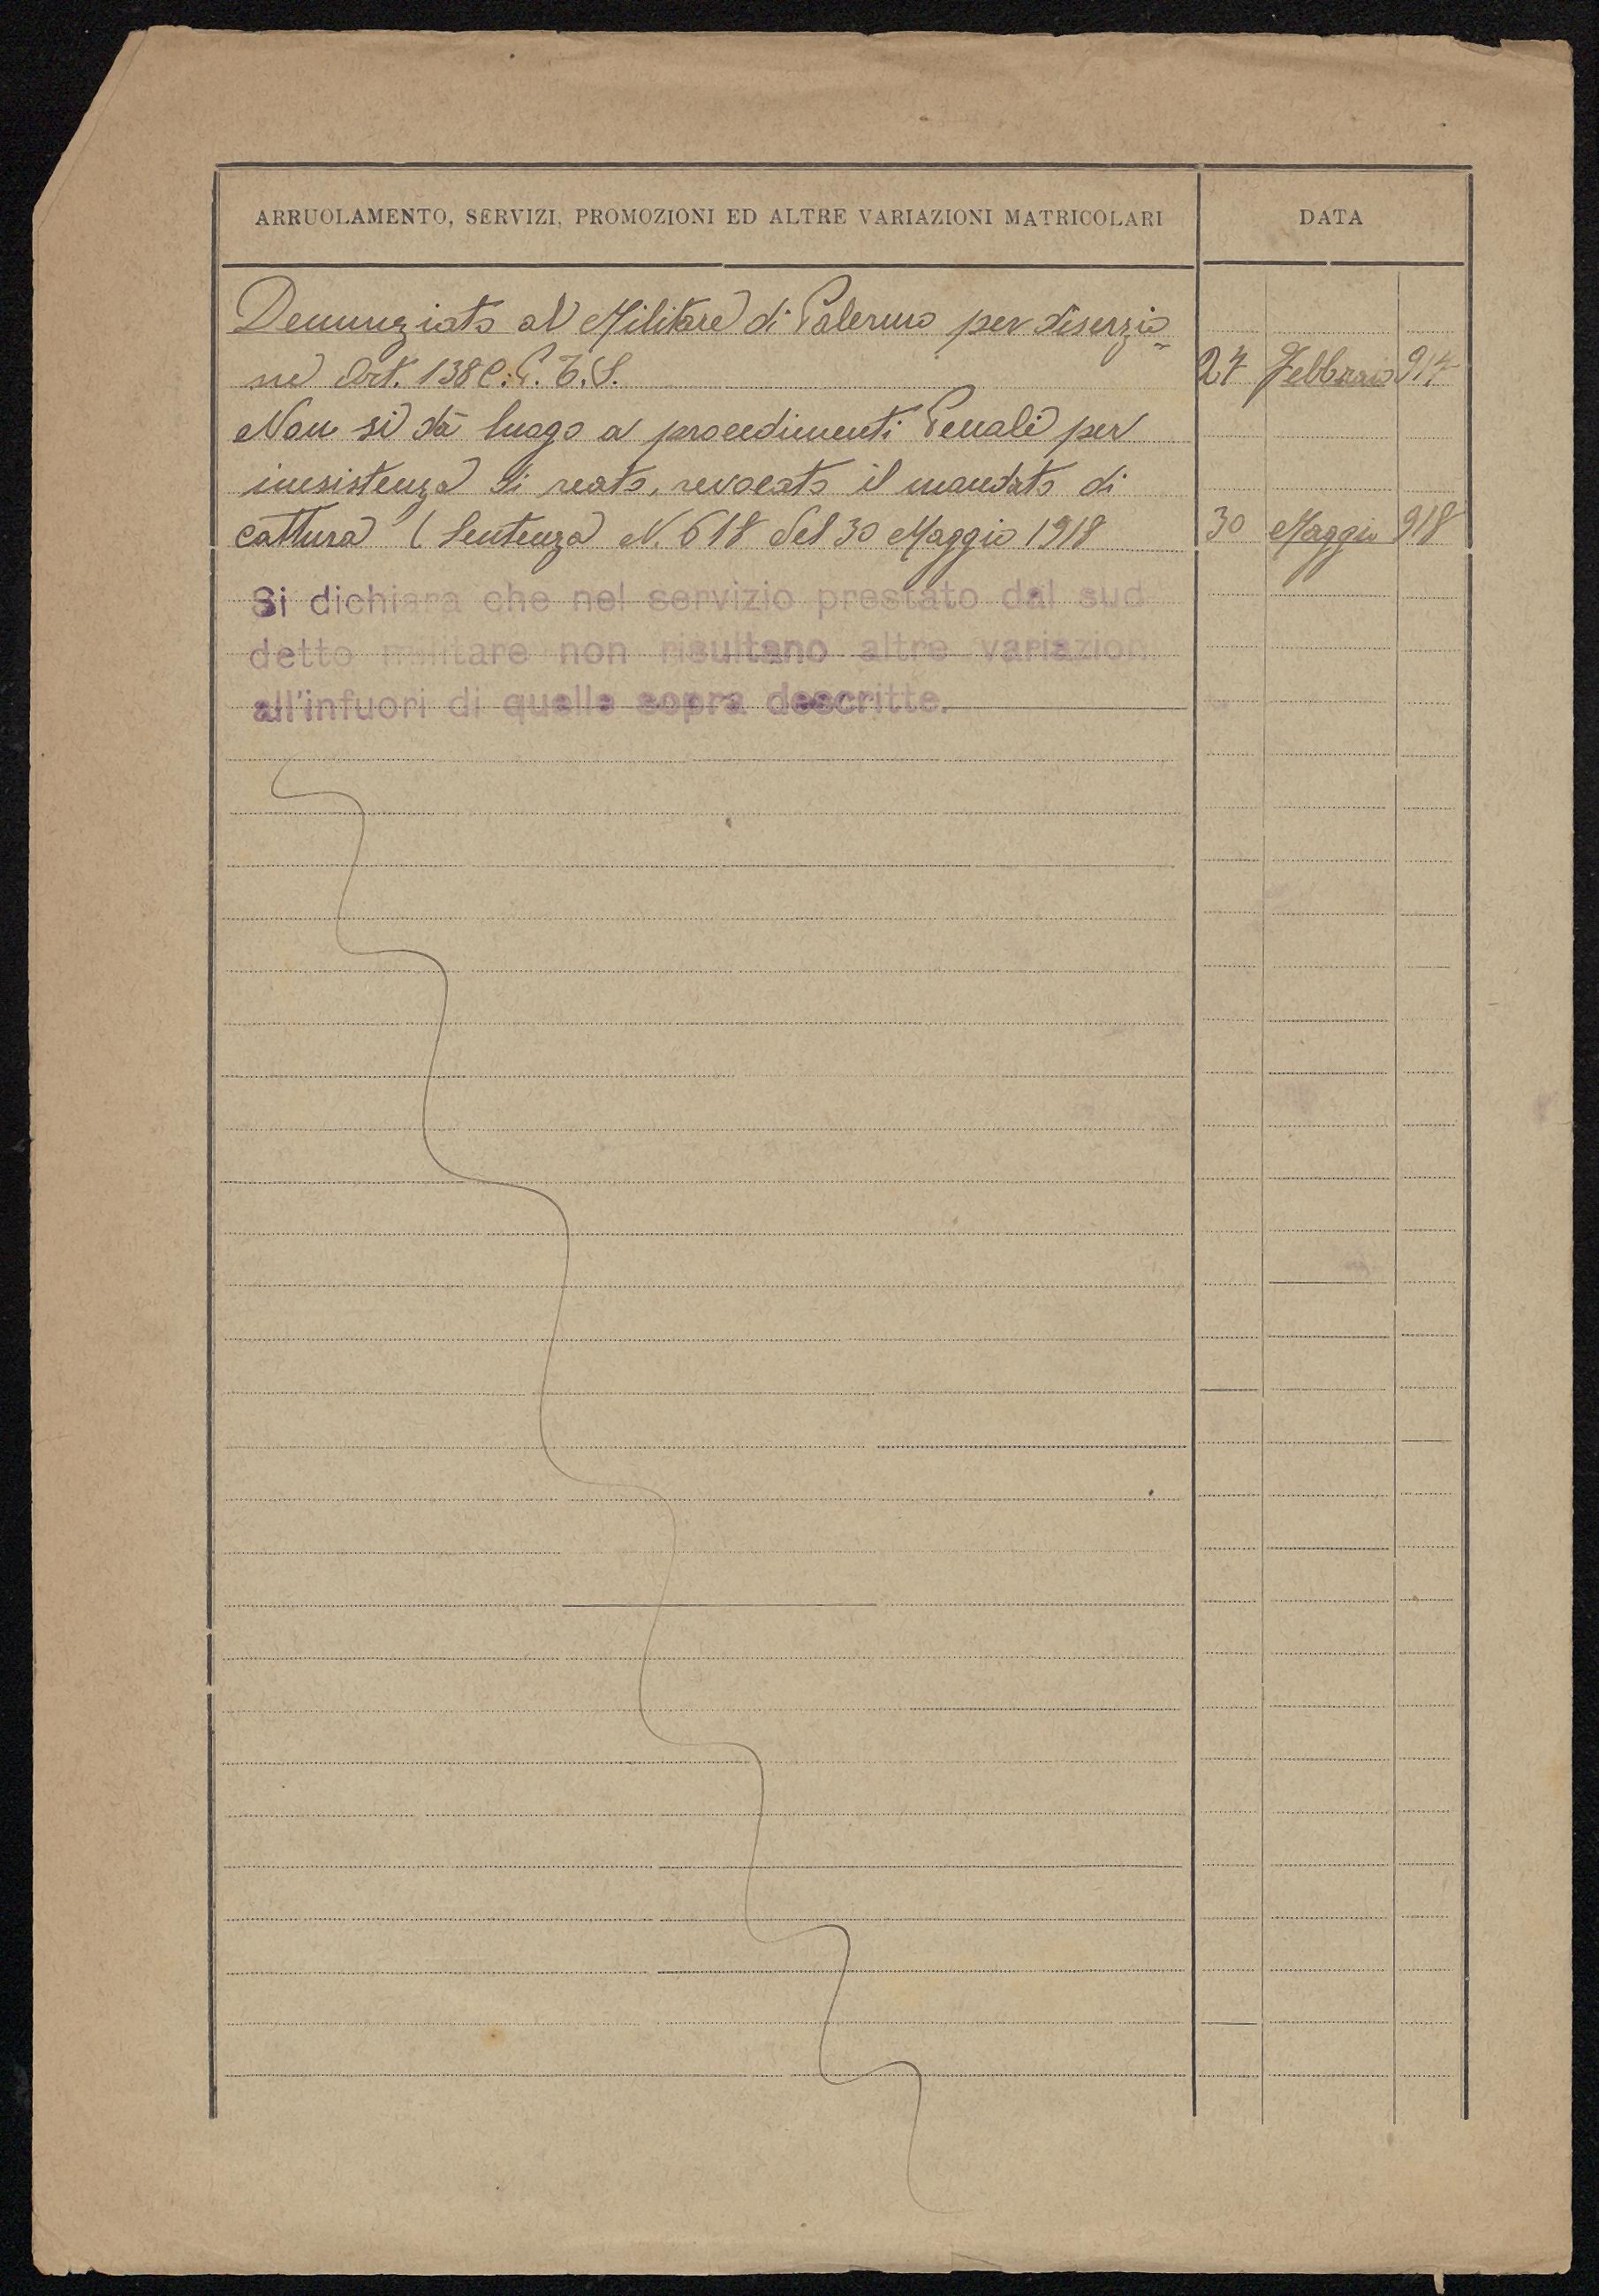 ARRUOLAMENTO, SERVIZI, PROMOZIONI ED ALTRE VARIAZIONI MATRICOLARI DATA
Denunziato al Militare di Palermo per diserzio=
ne Art. 138 C. P. E. S. 27 Febbraio 917
Non si dà luogo a procedimenti Penali per
inesistenza di reato, revocato il mandato di
cattura (Sentenza N. 618 del 30 Maggio 1918 30 Maggio 918
Si dichiara che nel servizio prestato dal sud
detto militare non risultano altre variazion
all'infuori di quelle sopra descritte.